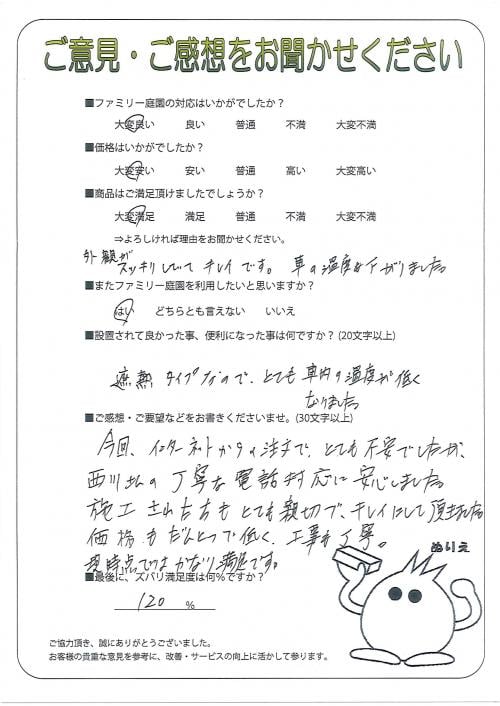 ご意見・ご感想をお聞かせください
■ファミリー庭園の対応はいかがでしたか？
大変良い 良い 普通 不満 大変不満
■価格はいかがでしたか？
大変安い 安い 普通 高い 大変高い
■商品はご満足頂けましたでしょうか？
大変満足 満足 普通 不満 大変不満
⇒よろしければ理由をお聞かせください。
外観が
スッキリしていて キレイです。 車の温度も下がりました。
■またファミリー庭園を利用したいと思いますか？
はい どちらとも言えない いいえ
■設置されて良かった事、便利になった事は何ですか？(20文字以上)
遮熱タイプなので、とても 車内の温度が低く
なりました。
■ご感想・ご要望などをお書きくださいませ。(30文字以上)
今回、インターネットからの注文で、とても不安でしたが、
西川さんの丁寧な電話対応に安心しました。
施工された方も とても親切で、キレイにして頂きました。
価格もだんとつで低く、工事も丁寧。
現時点ではかなり満足です。
ぬりえ
■最後に、ズバリ満足度は何%ですか？
120 %
ご協力頂き、誠にありがとうございました。
お客様の貴重な意見を参考に、改善・サービスの向上に活かして参ります。